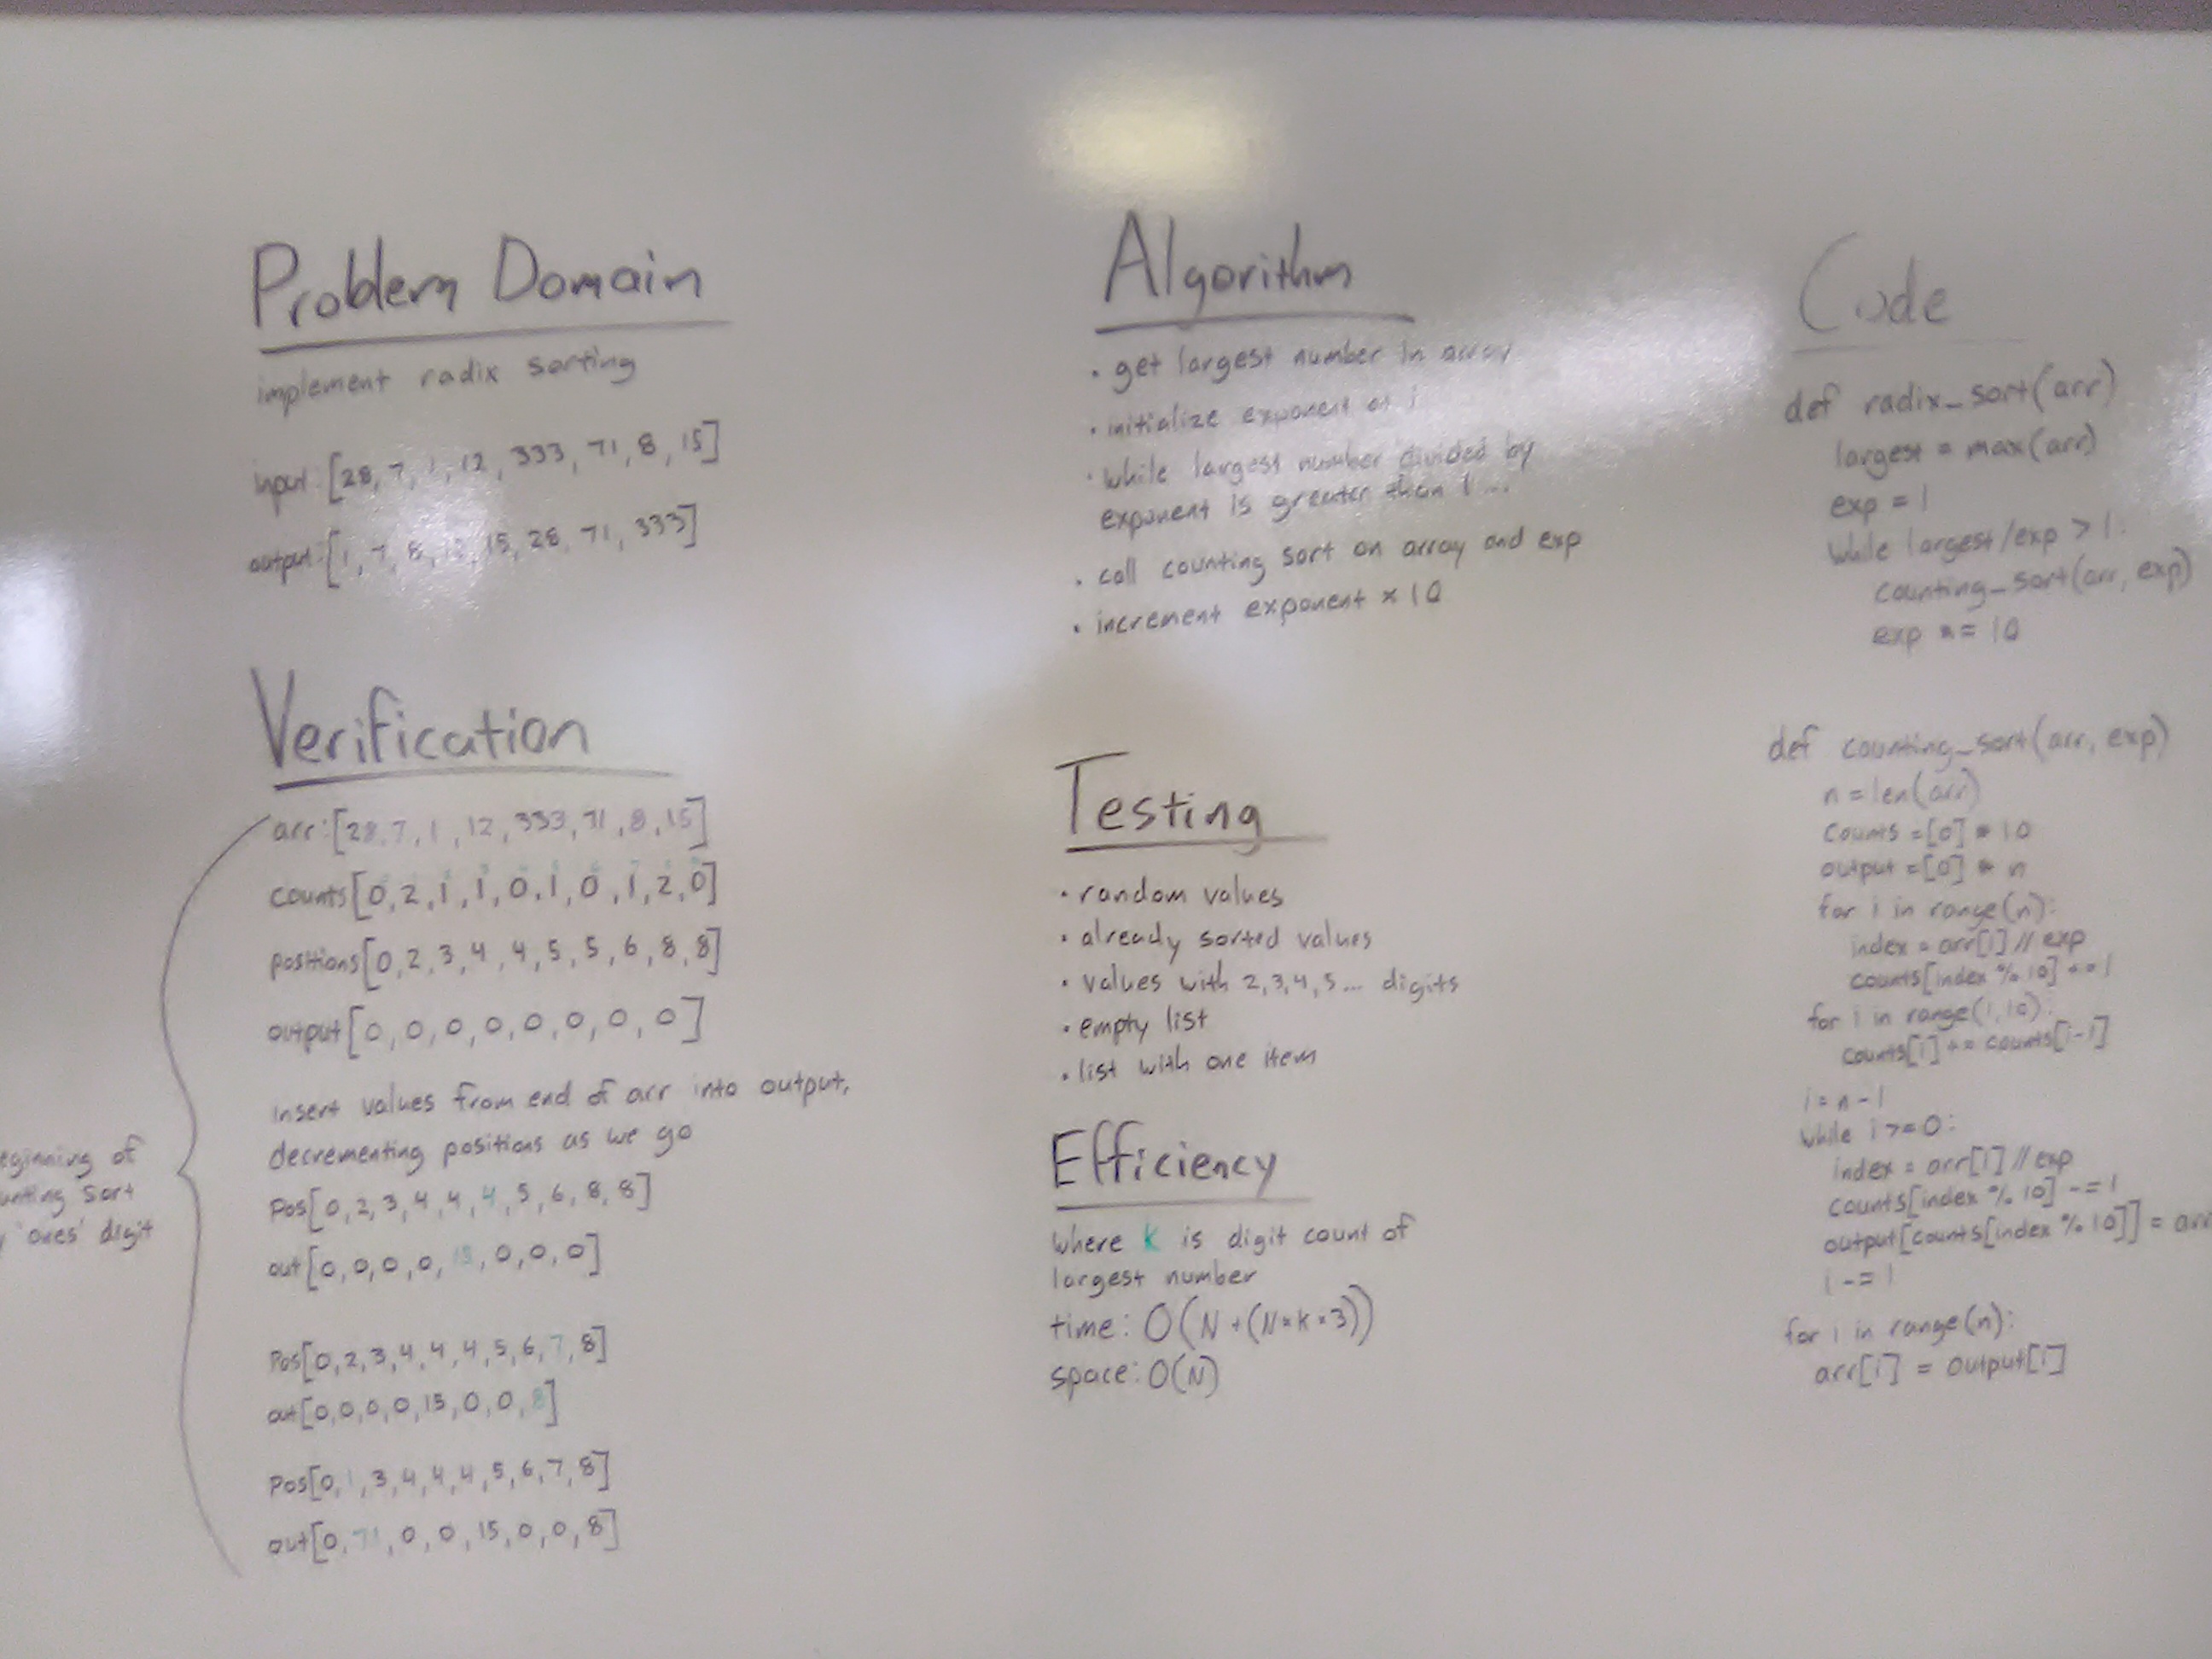 Problem Domain
implement radix sorting
input: [28, 7, 1, 12, 333, 71, 8, 15]
output: [1, 7, 8, 12, 15, 28, 71, 333]
Verification
arr: [28, 7, 1, 12, 333, 71, 8, 15]
counts[0, 2, 1, 1, 0, 1, 0, 1, 2, 0]
positions[0, 2, 3, 4, 4, 5, 5, 6, 8, 8]
output[0, 0, 0, 0, 0, 0, 0, 0]
insert values from end of arr into output,
decrementing positions as we go
Pos[0, 2, 3, 4, 4, 4, 5, 6, 8, 8]
out[0, 0, 0, 0, 15, 0, 0, 0]
Pos[0, 2, 3, 4, 4, 4, 5, 6, 7, 8]
out[0, 0, 0, 0, 15, 0, 0, 8]
Pos[0, 1, 3, 4, 4, 4, 5, 6, 7, 8]
out[0, 71, 0, 0, 15, 0, 0, 8]
eginning of
unting sort
y 'ones' digit
Algorithm
• get largest number in array
• initialize exponent as 1
• while largest number divided by
exponent is greater than 1 ...
• call counting sort on array and exp
• increment exponent × 10
Testing
• random values
• already sorted values
• values with 2, 3, 4, 5... digits
• empty list
• list with one item
Efficiency
where k is digit count of
largest number
time: O(N + (N * K * 3))
space: O(N)
Code
def radix_sort(arr)
largest = max(arr)
exp = 1
while largest/exp > 1:
counting_sort(arr, exp)
exp *= 10
def counting_sort(arr, exp)
n = len(arr)
counts = [0] * 10
output = [0] * n
for i in range(n):
index = arr[i] // exp
counts[index % 10] += 1
for i in range(1, 10):
counts[i] += counts[i-1]
i = n - 1
while i >= 0:
index = arr[i] // exp
counts[index % 10] -= 1
output[counts[index % 10]] = arr
i -= 1
for i in range(n):
arr[i] = output[i]